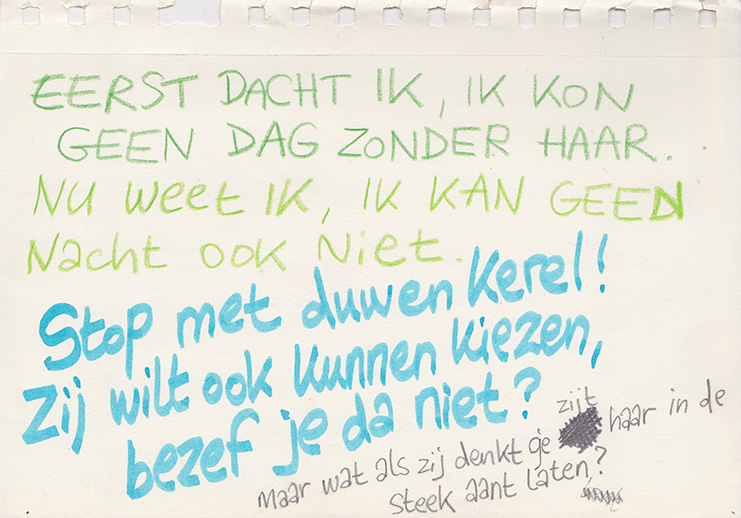 EERST DACHT IK, IK KON
GEEN DAG ZONDER HAAR.
NU WEET IK, IK KAN GEEN
NACHT OOK NIET.
Stop met duwen kerel!
Zij wilt ook kunnen kiezen,
bezef je da niet?
maar wat als zij denkt ge zijt haar in de
steek aant laten?